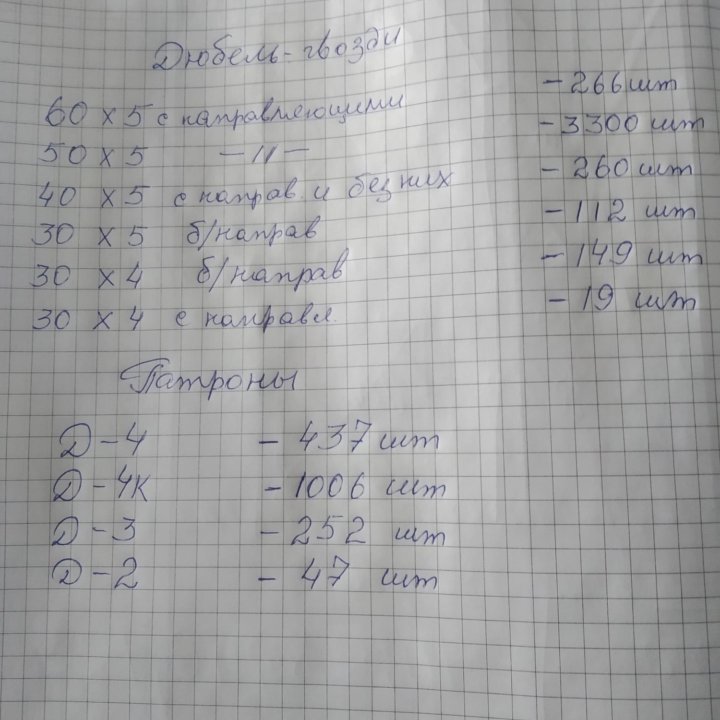 Дюбель-гвозди
60 х 5 с направляющими - 266 шт
50 х 5 —"— - 3300 шт
40 х 5 с направ. и без них - 260 шт
30 х 5 б/направ - 112 шт
30 х 4 б/направ - 149 шт
30 х 4 с направл. - 19 шт
Патроны
Д-4 - 437 шт
Д-4К - 1006 шт
Д-3 - 252 шт
Д-2 - 47 шт